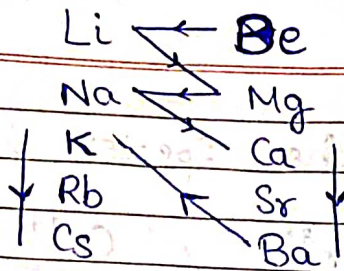 Li Be
Na Mg
K Ca
Rb Sr
Cs Ba